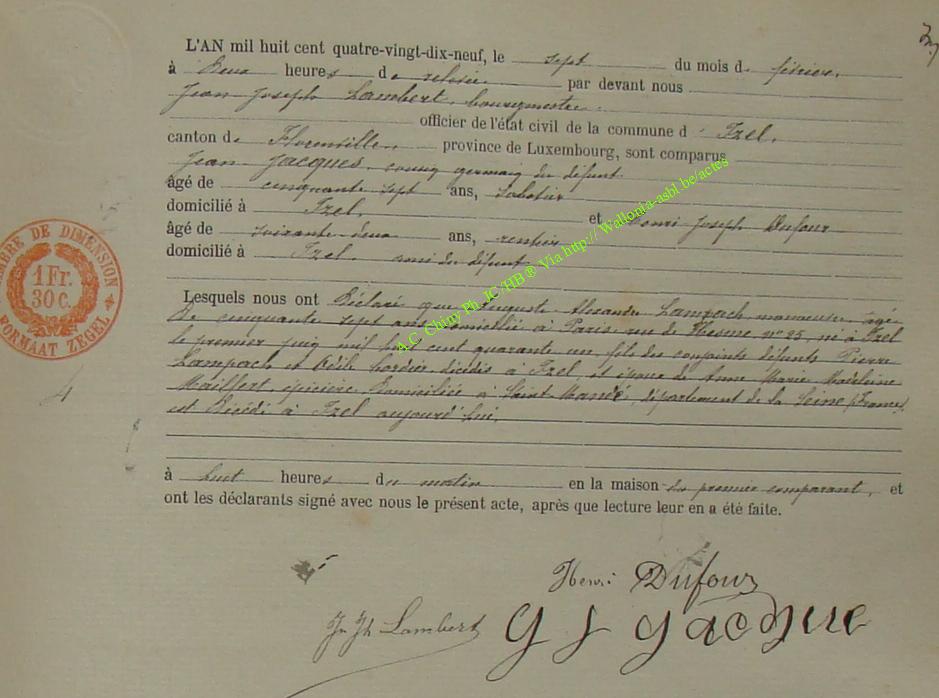 L'AN mil huit cent quatre-vingt-dix-neuf, le sept du mois de février,
à Deux heures de relevée par devant nous
Jean Joseph Lambert, bourgmestre
officier de l'état civil de la commune d' Izel,
canton de Florenville, province de Luxembourg, sont comparus
Jean Jacques, cousin germain du défunt
âgé de cinquante sept ans, sabotier
domicilié à Izel, et Henri Joseph Dufour
âgé de soixante deux ans, rentier
domicilié à Izel, ami du défunt
Lesquels nous ont Déclaré que Auguste Alexandre Lampach manoeuvre, âgé
de cinquante sept ans domicilié à Paris rue de Mesme nº 25, né à Izel
le premier juin mil huit cent quarante un, fils des conjoints défunts Pierre
Lampach et Odile bordier décédés à Izel, et époux de Anne Marie Madeleine
Maillert, épicière, domiciliée à Saint-Mandé, département de la Seine (France),
est décédé à Izel aujourd'hui
à huit heures du matin en la maison du premier comparant, et
ont les déclarants signé avec nous le présent acte, après que lecture leur en a été faite.
Henri Dufour
Jn Jh Lambert G J Jacque
TIMBRE DE DIMENSION
1 Fr.
30 C.
FORMAAT ZEGEL
4
A.C. Chiny Ph. JC/HB ® Via http:// Wallonia-asbl.be/actes